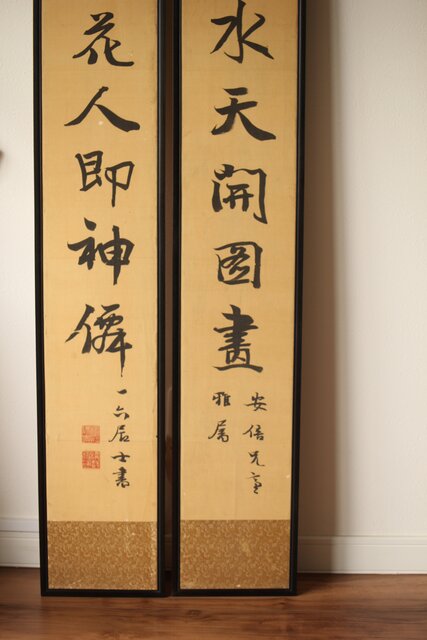 水天開圖畫
安倍兄臺
雅属
花人即神僊
一六居士書